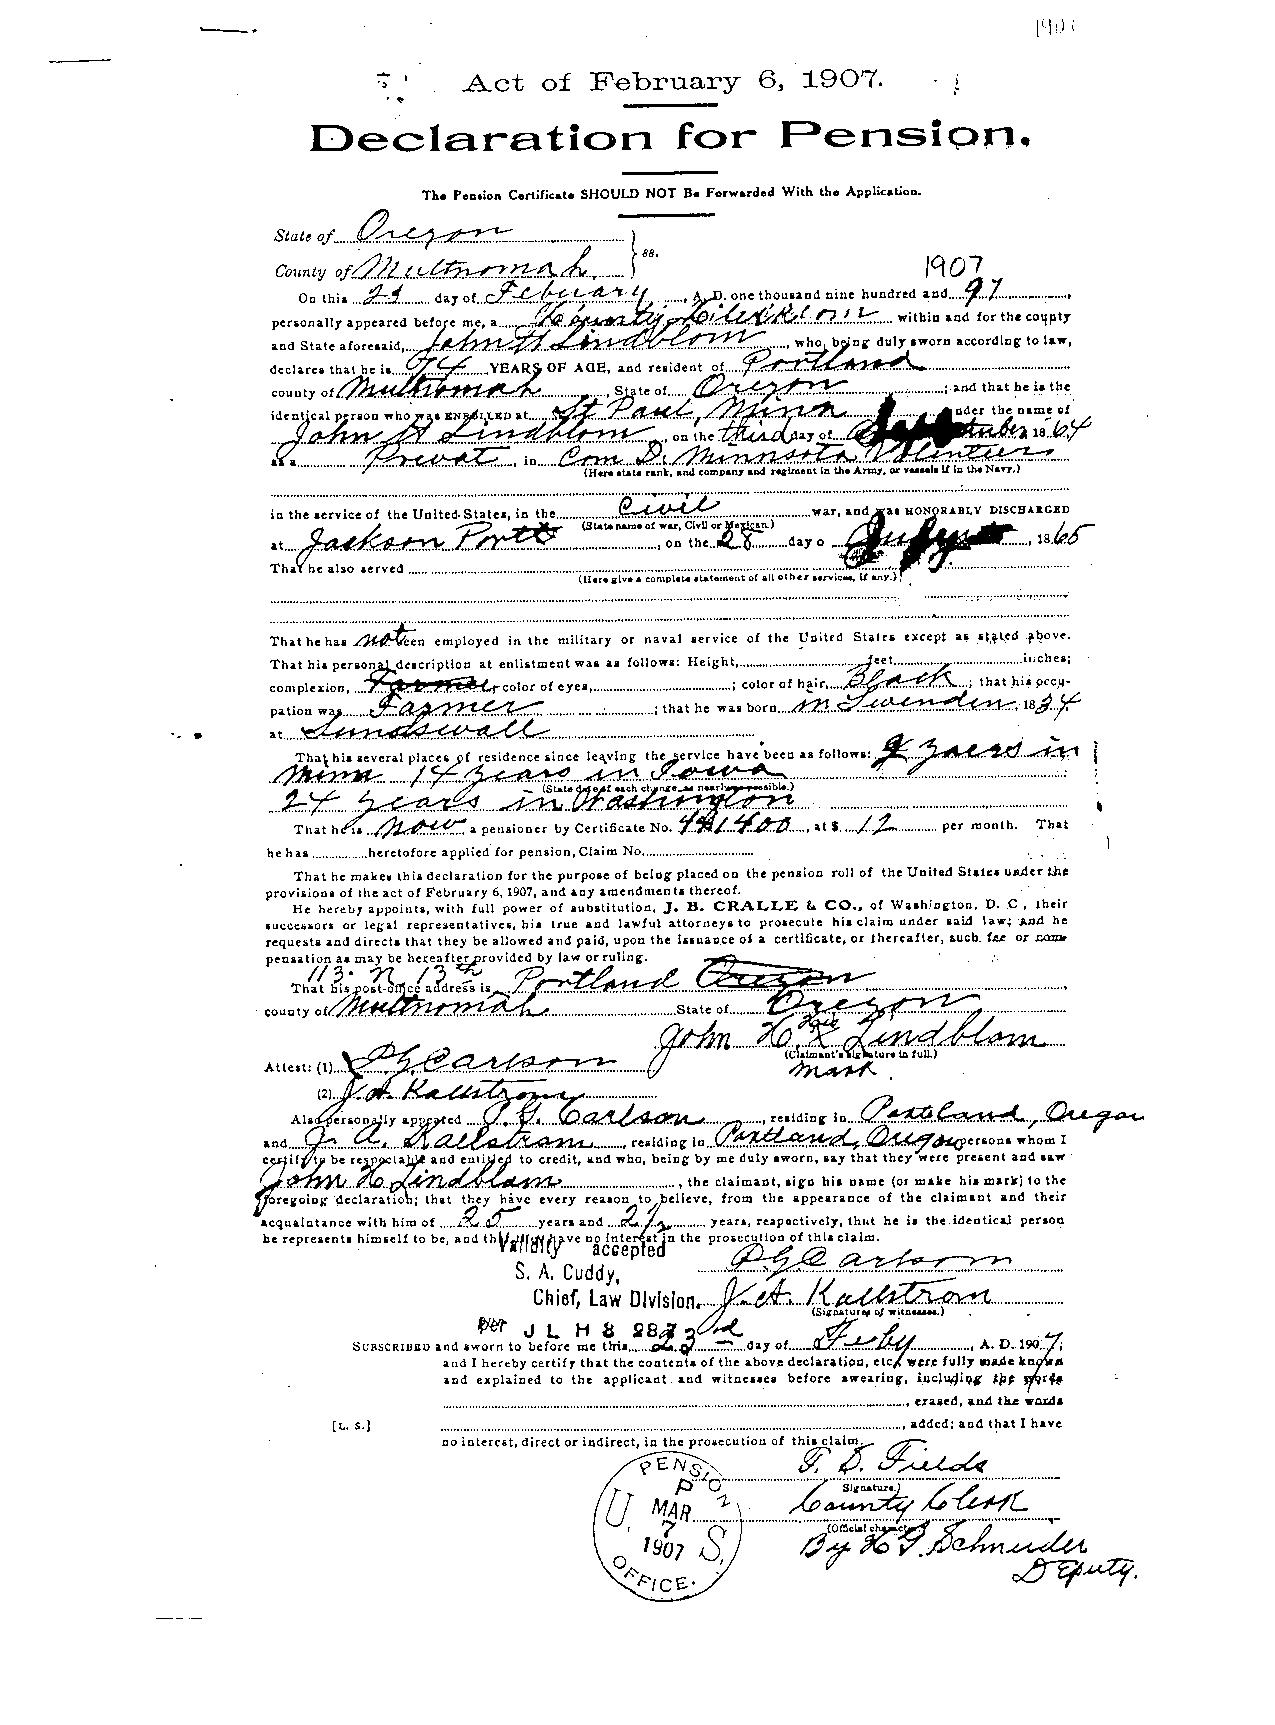 1907
Act of February 6, 1907.
Declaration for Pension.
The Pension Certificate SHOULD NOT Be Forwarded With the Application.
State of Oregon
County of Multnomah } ss.
1907
On this 23 day of Februarry, A. D. one thousand nine hundred and 97,
personally appeared before me, a County within and for the county
and State aforesaid, John H Lindblom, who, being duly sworn according to law,
declares that he is 74 YEARS OF AGE, and resident of Portland
county of Multnomah, State of Oregon; and that he is the
identical person who was ENROLLED at St Paul, Minn under the name of
John H Lindblom, on the third day of 1864
as a Privat, in Com D. Minnsota Volentier
(Here state rank, and company and regiment in the Army, or vessels if in the Navy.)
in the service of the United States, in the Civil war, and was HONORABLY DISCHARGED
(State name of war, Civil or Mexican.)
at Jackson Port, on the 28 day o 1865
That he also served
(Here give a complete statement of all other services, if any.)
That he has not been employed in the military or naval service of the United States except as stated above.
That his personal description at enlistment was as follows: Height, feet inches;
complexion, Farmer, color of eyes, ; color of hair, Black; that his occu-
pation was Farmer; that he was born in Swenden, 1834
at Sundswall
That his several places of residence since leaving the service have been as follows: 9 yaers in
Minn 14 years in Iowa
(State date of each change, as nearly as possible.)
24 years in Washington
That he is now a pensioner by Certificate No. 481400, at $ 12 per month. That
he has heretofore applied for pension, Claim No.
That he makes this declaration for the purpose of being placed on the pension roll of the United States under the
provisions of the act of February 6, 1907, and any amendments thereof.
He hereby appoints, with full power of substitution, J. B. CRALLE & CO., of Washington, D. C, their
successors or legal representatives, his true and lawful attorneys to prosecute his claim under said law; and he
requests and directs that they be allowed and paid, upon the issuance of a certificate, or thereafter, such fee or com-
pensation as may be hereafter provided by law or ruling.
That his post-office address is 113. N 13th Portland Oregon
county of Multnomah State of Oregon
John H. his X Lindblom
(Claimant's signature in full.)
mark
Attest: (1) P G Carlson
(2) J. A. Kallstrom
Also personally appeared P. G. Carlson, residing in Portland, Oregon
and J. A. Kallstrom, residing in Portland, Oregon persons whom I
certify to be respectable and entitled to credit, and who, being by me duly sworn, say that they were present and saw
John H Lindblom, the claimant, sign his name (or make his mark) to the
foregoing declaration; that they have every reason to believe, from the appearance of the claimant and their
acquaintance with him of 25 years and 2½ years, respectively, that he is the identical person
he represents himself to be, and th have no interest in the prosecution of this claim.
Validity accepted
P G Carlson
S. A. Cuddy,
Chief, Law Division.
J. A. Kallstrom
(Signatures of witnesses.)
per J L H 8 287
SUBSCRIBED and sworn to before me this 23rd day of Feby, A. D. 1907,
and I hereby certify that the contents of the above declaration, etc, were fully made known
and explained to the applicant and witnesses before swearing, including the words
, erased, and the words
[L. S.] , added; and that I have
no interest, direct or indirect, in the prosecution of this claim.
F. S. Fields
Signature.)
County Clerk
(Official character.)
By H G. Schneider
Deputy.
U. S. PENSION OFFICE.
MAR
7
1907